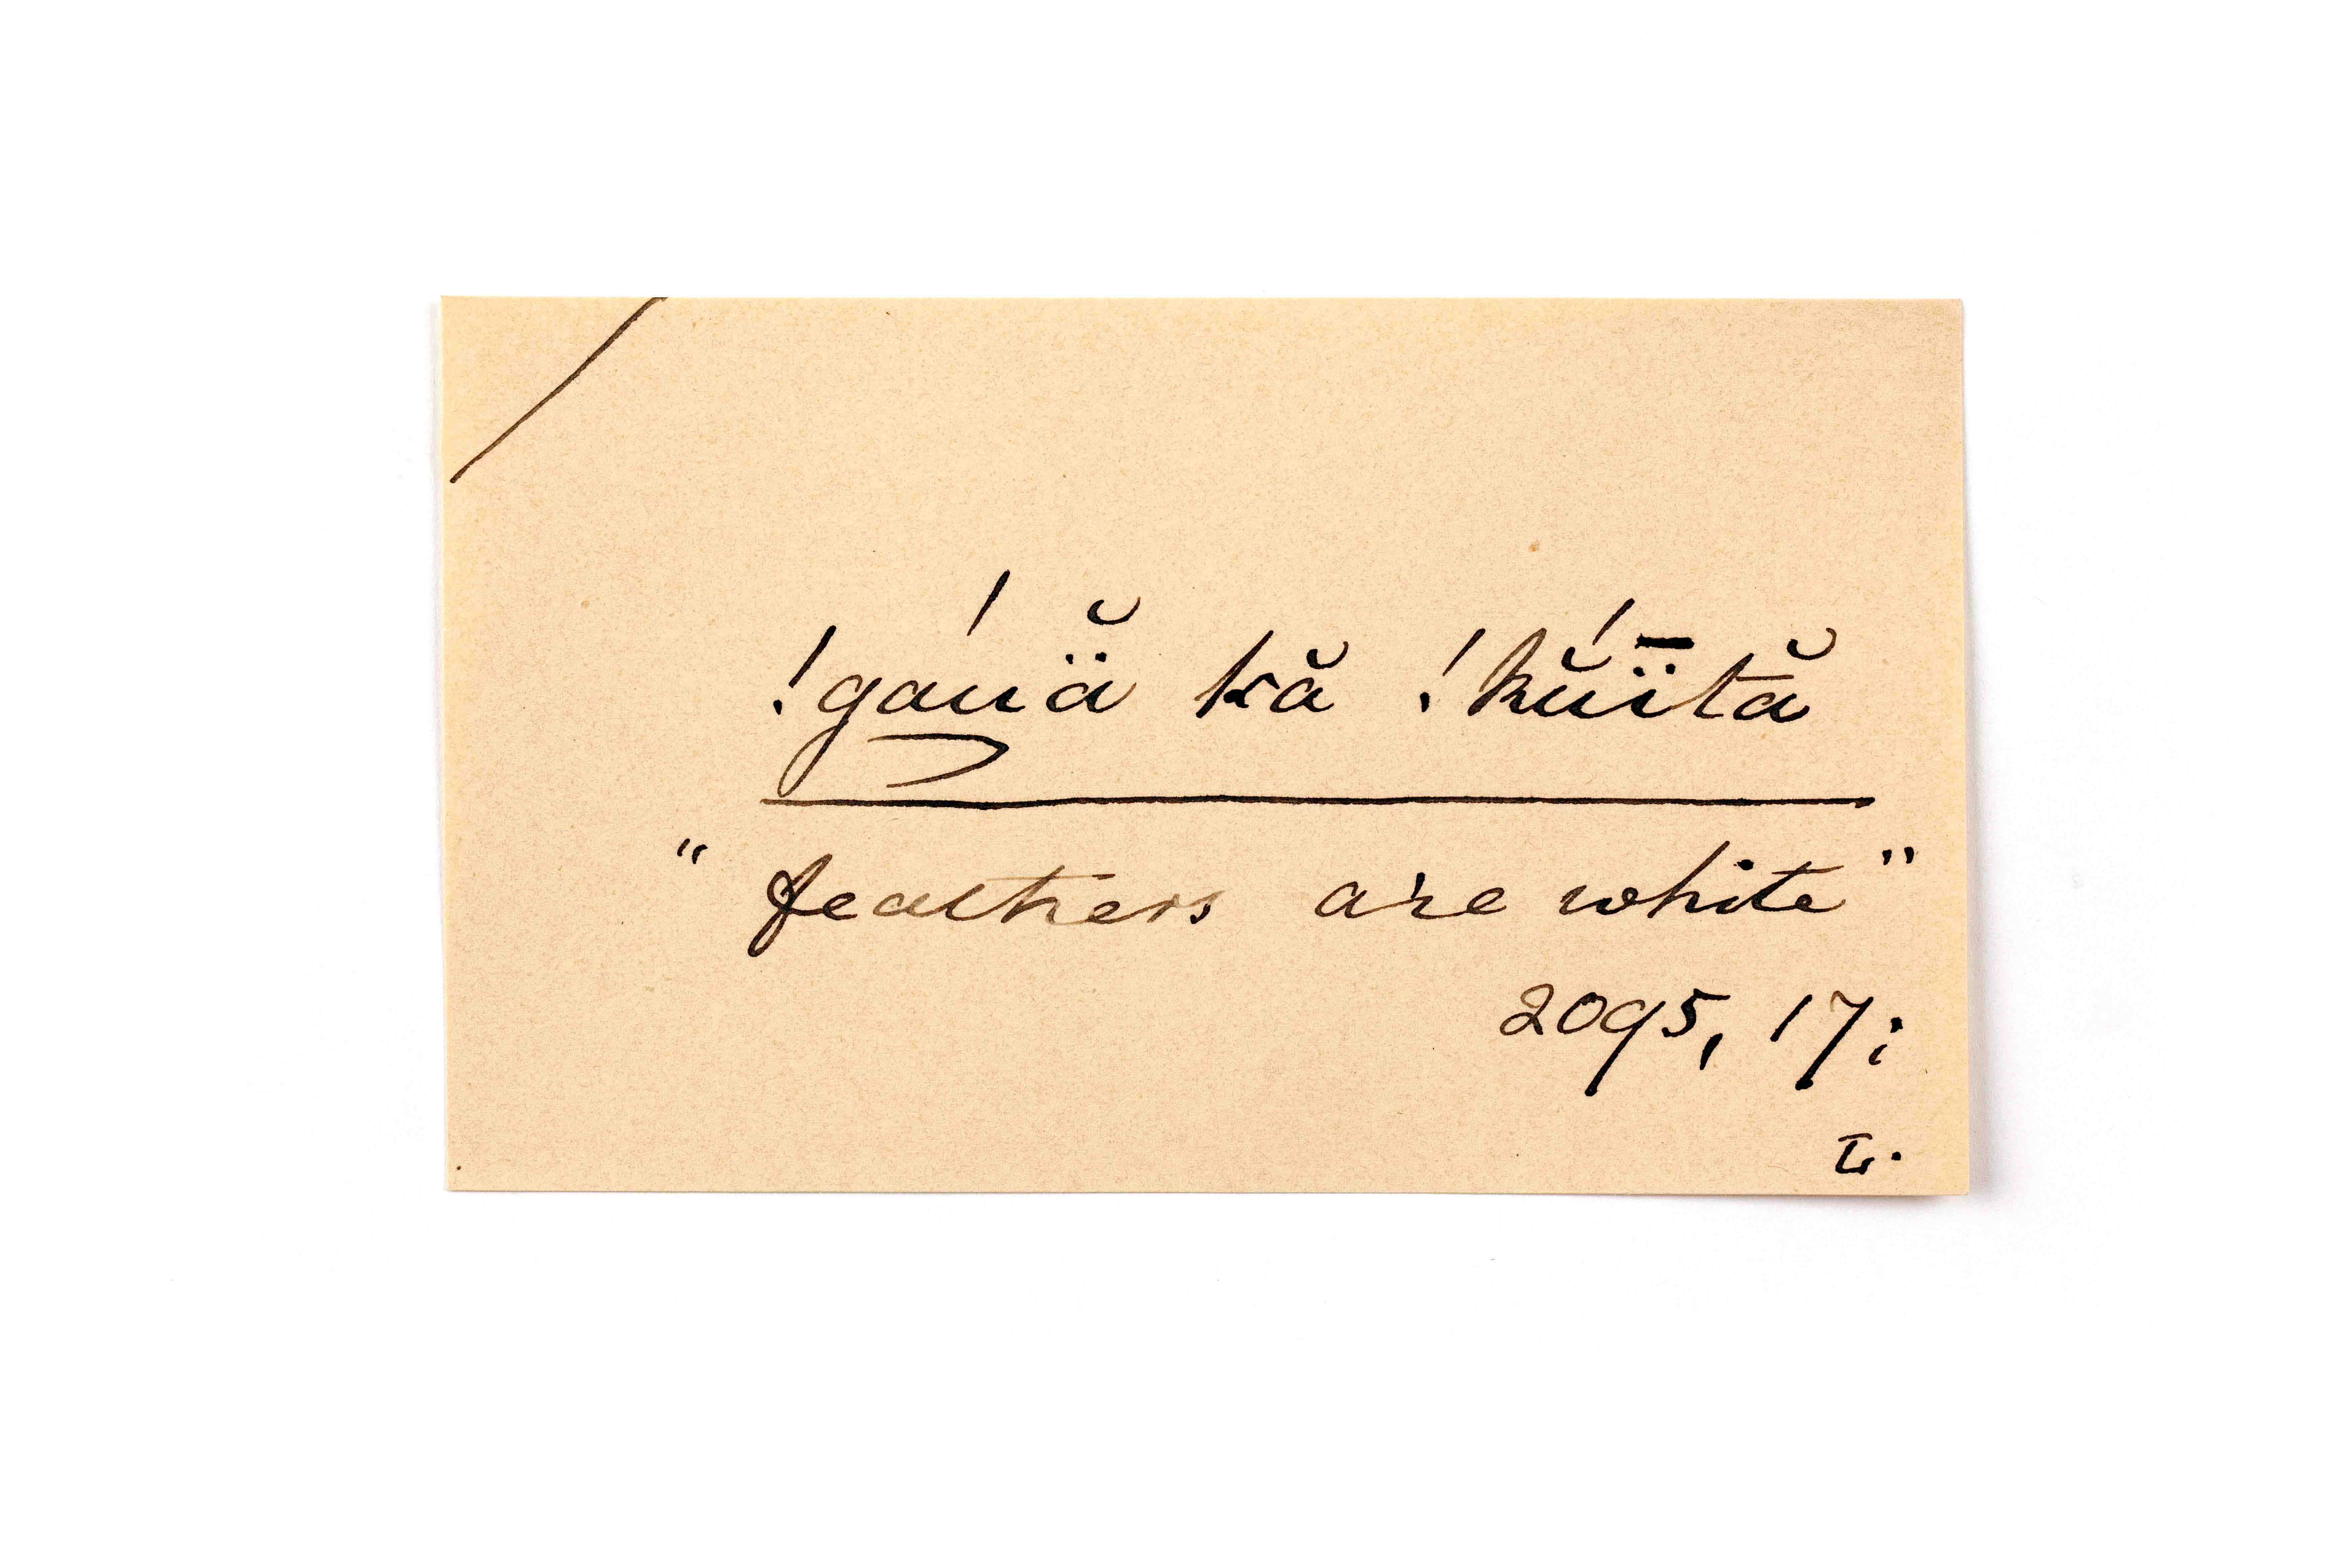 !gáuä̆ kă !kŭ́ï̄tă
" feathers are white "
2095, 17;
L.